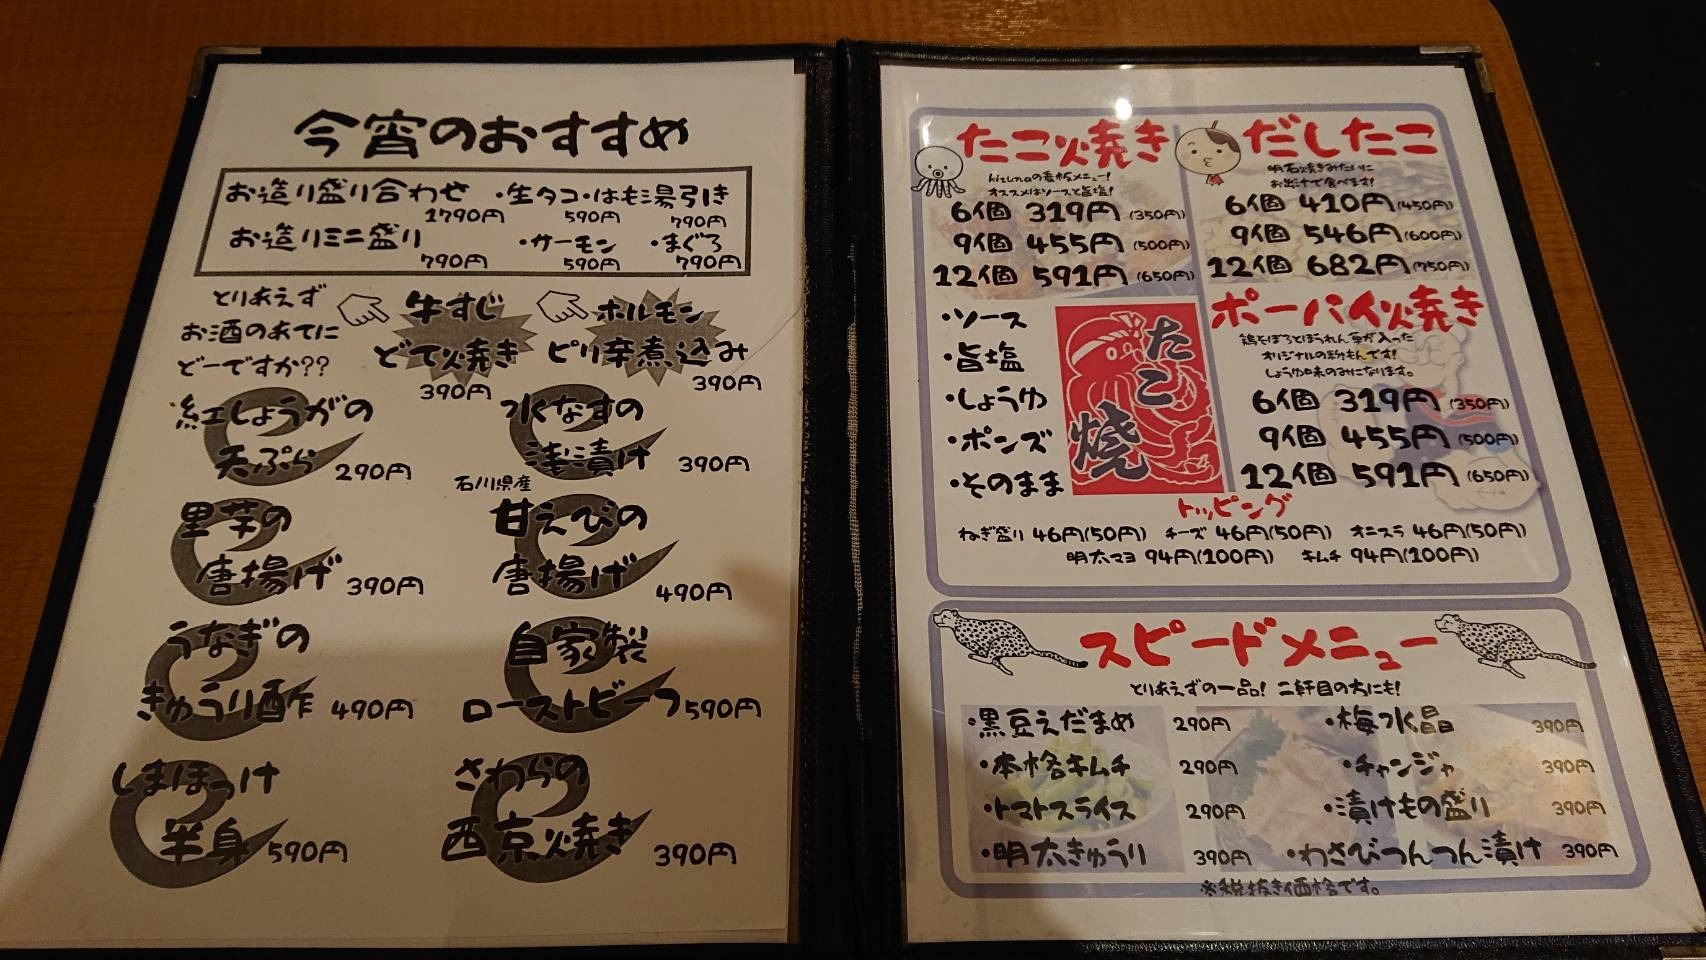 今宵のおすすめ
お造り盛り合わせ 1790円
・生タコ 590円
・はも湯引き 790円
お造りミニ盛り 790円
・サーモン 590円
・まぐろ 790円
とりあえず
お酒のあてに
どーですか??
牛すじ
どて焼き
390円
ホルモン
ピリ辛煮込み
390円
紅しょうがの
天ぷら 290円
水なすの
浅漬け 390円
里芋の
唐揚げ 390円
石川県産
甘えびの
唐揚げ 490円
うなぎの
きゅうり酢 490円
自家製
ローストビーフ 590円
しまほっけ
半身 590円
さわらの
西京焼き 390円
たこ焼き
kizunaの看板メニュー!
オススメはソースと旨塩!
6個 319円 (350円)
9個 455円 (500円)
12個 591円 (650円)
だしたこ
明石焼きみたいに
お出汁で食べます!
6個 410円 (450円)
9個 546円 (600円)
12個 682円 (750円)
・ソース
・旨塩
・しょうゆ
・ポンズ
・そのまま
たこ
焼
ポーパイ焼き
鶏そぼろとほうれん草が入った
オリジナルの粉もんです!
しょうゆ味のみになります。
6個 319円 (350円)
9個 455円 (500円)
12個 591円 (650円)
トッピング
ねぎ盛り 46円(50円) チーズ 46円(50円) オニスラ 46円(50円)
明太マヨ 94円(100円) キムチ 94円(100円)
スピードメニュー
とりあえずの一品! 二軒目の方にも!
・黒豆えだまめ 290円
・梅水晶 390円
・本格キムチ 290円
・チャンジャ 390円
・トマトスライス 290円
・漬けもの盛り 390円
・明太きゅうり 390円
・わさびつんつん漬け 390円
※税抜き価格です。